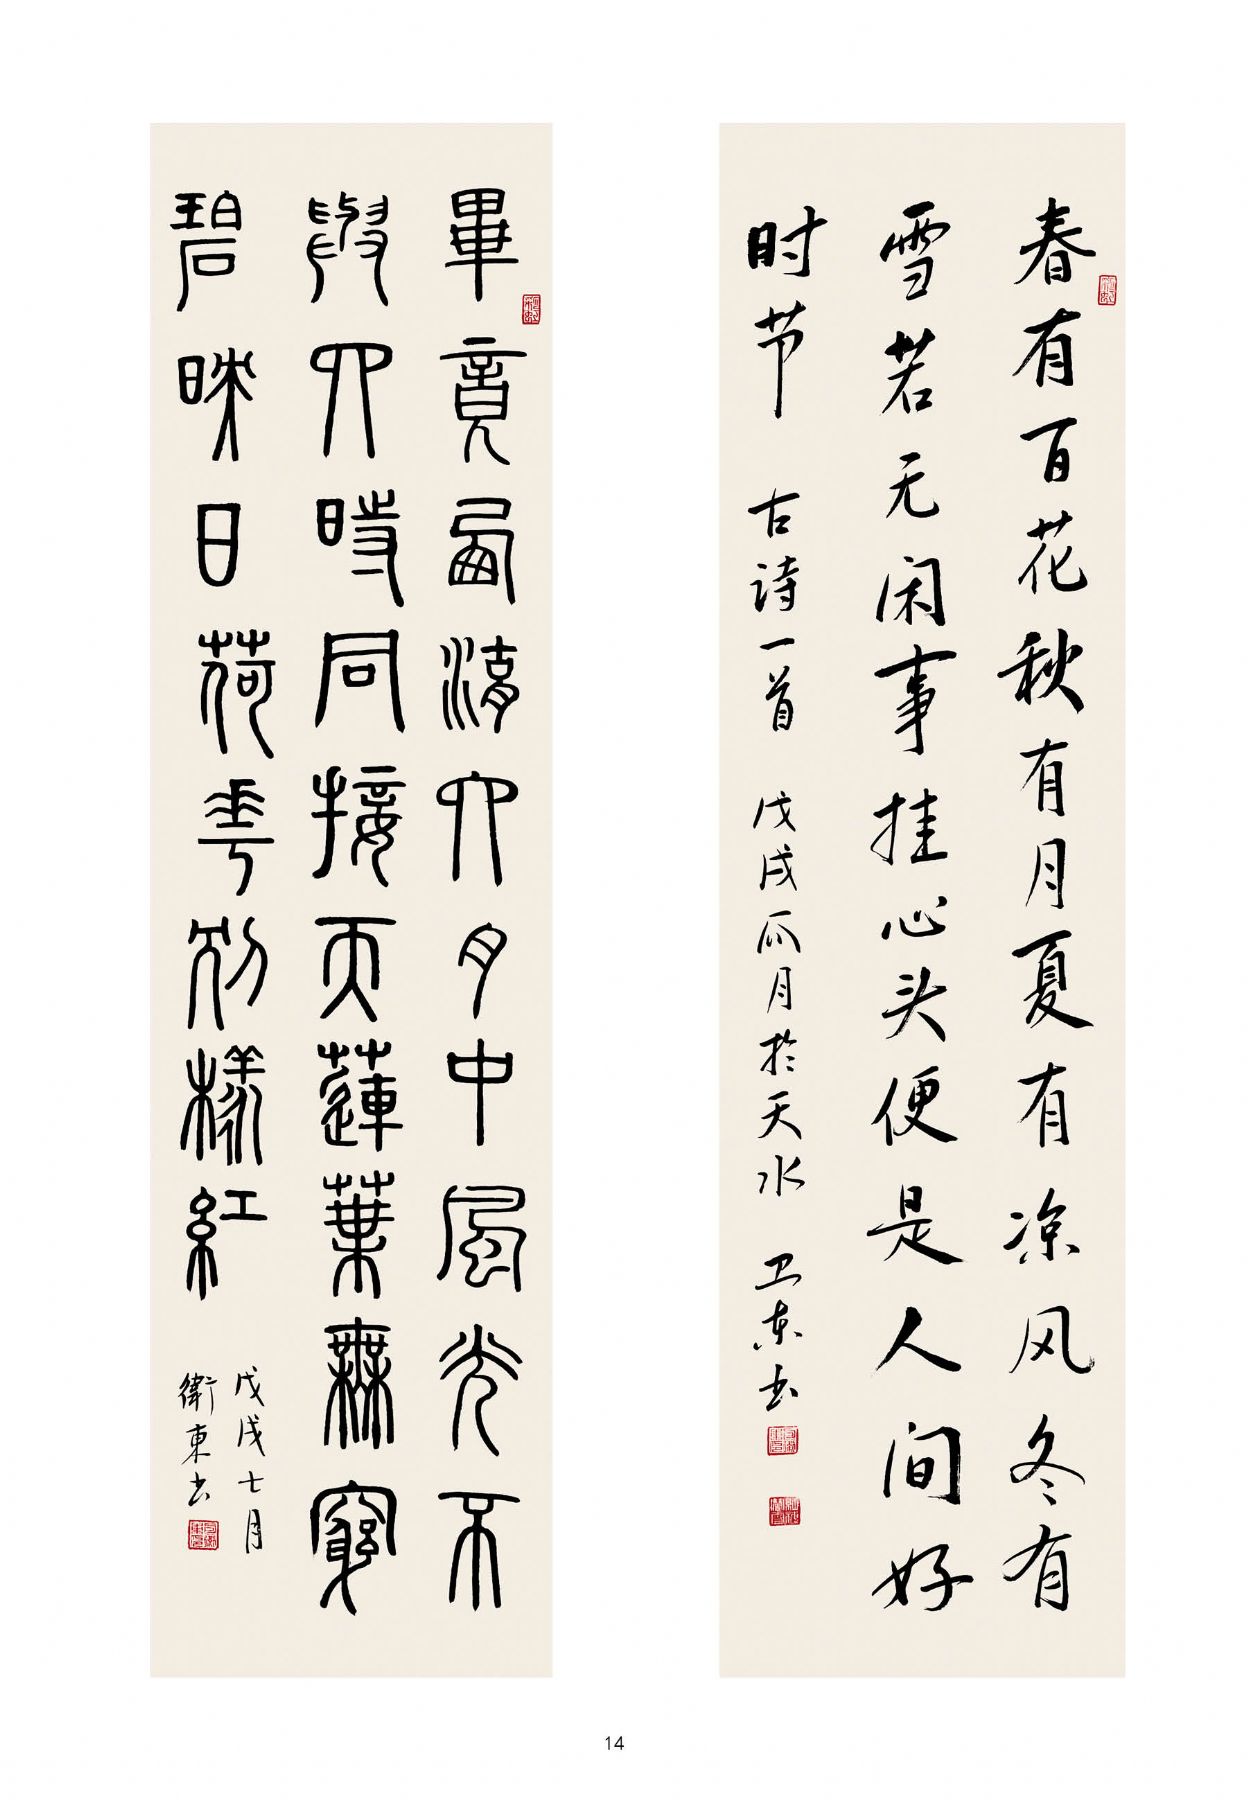 春有百花秋有月夏有凉风冬有
雪若无闲事挂心头便是人间好
时节 古诗一首 戊戌瓜月於天水 卫东书
畢竟西湖六月中風光不
與四時同接天蓮葉無窮
碧映日荷華別樣紅
戊戌七月
衛東书
14